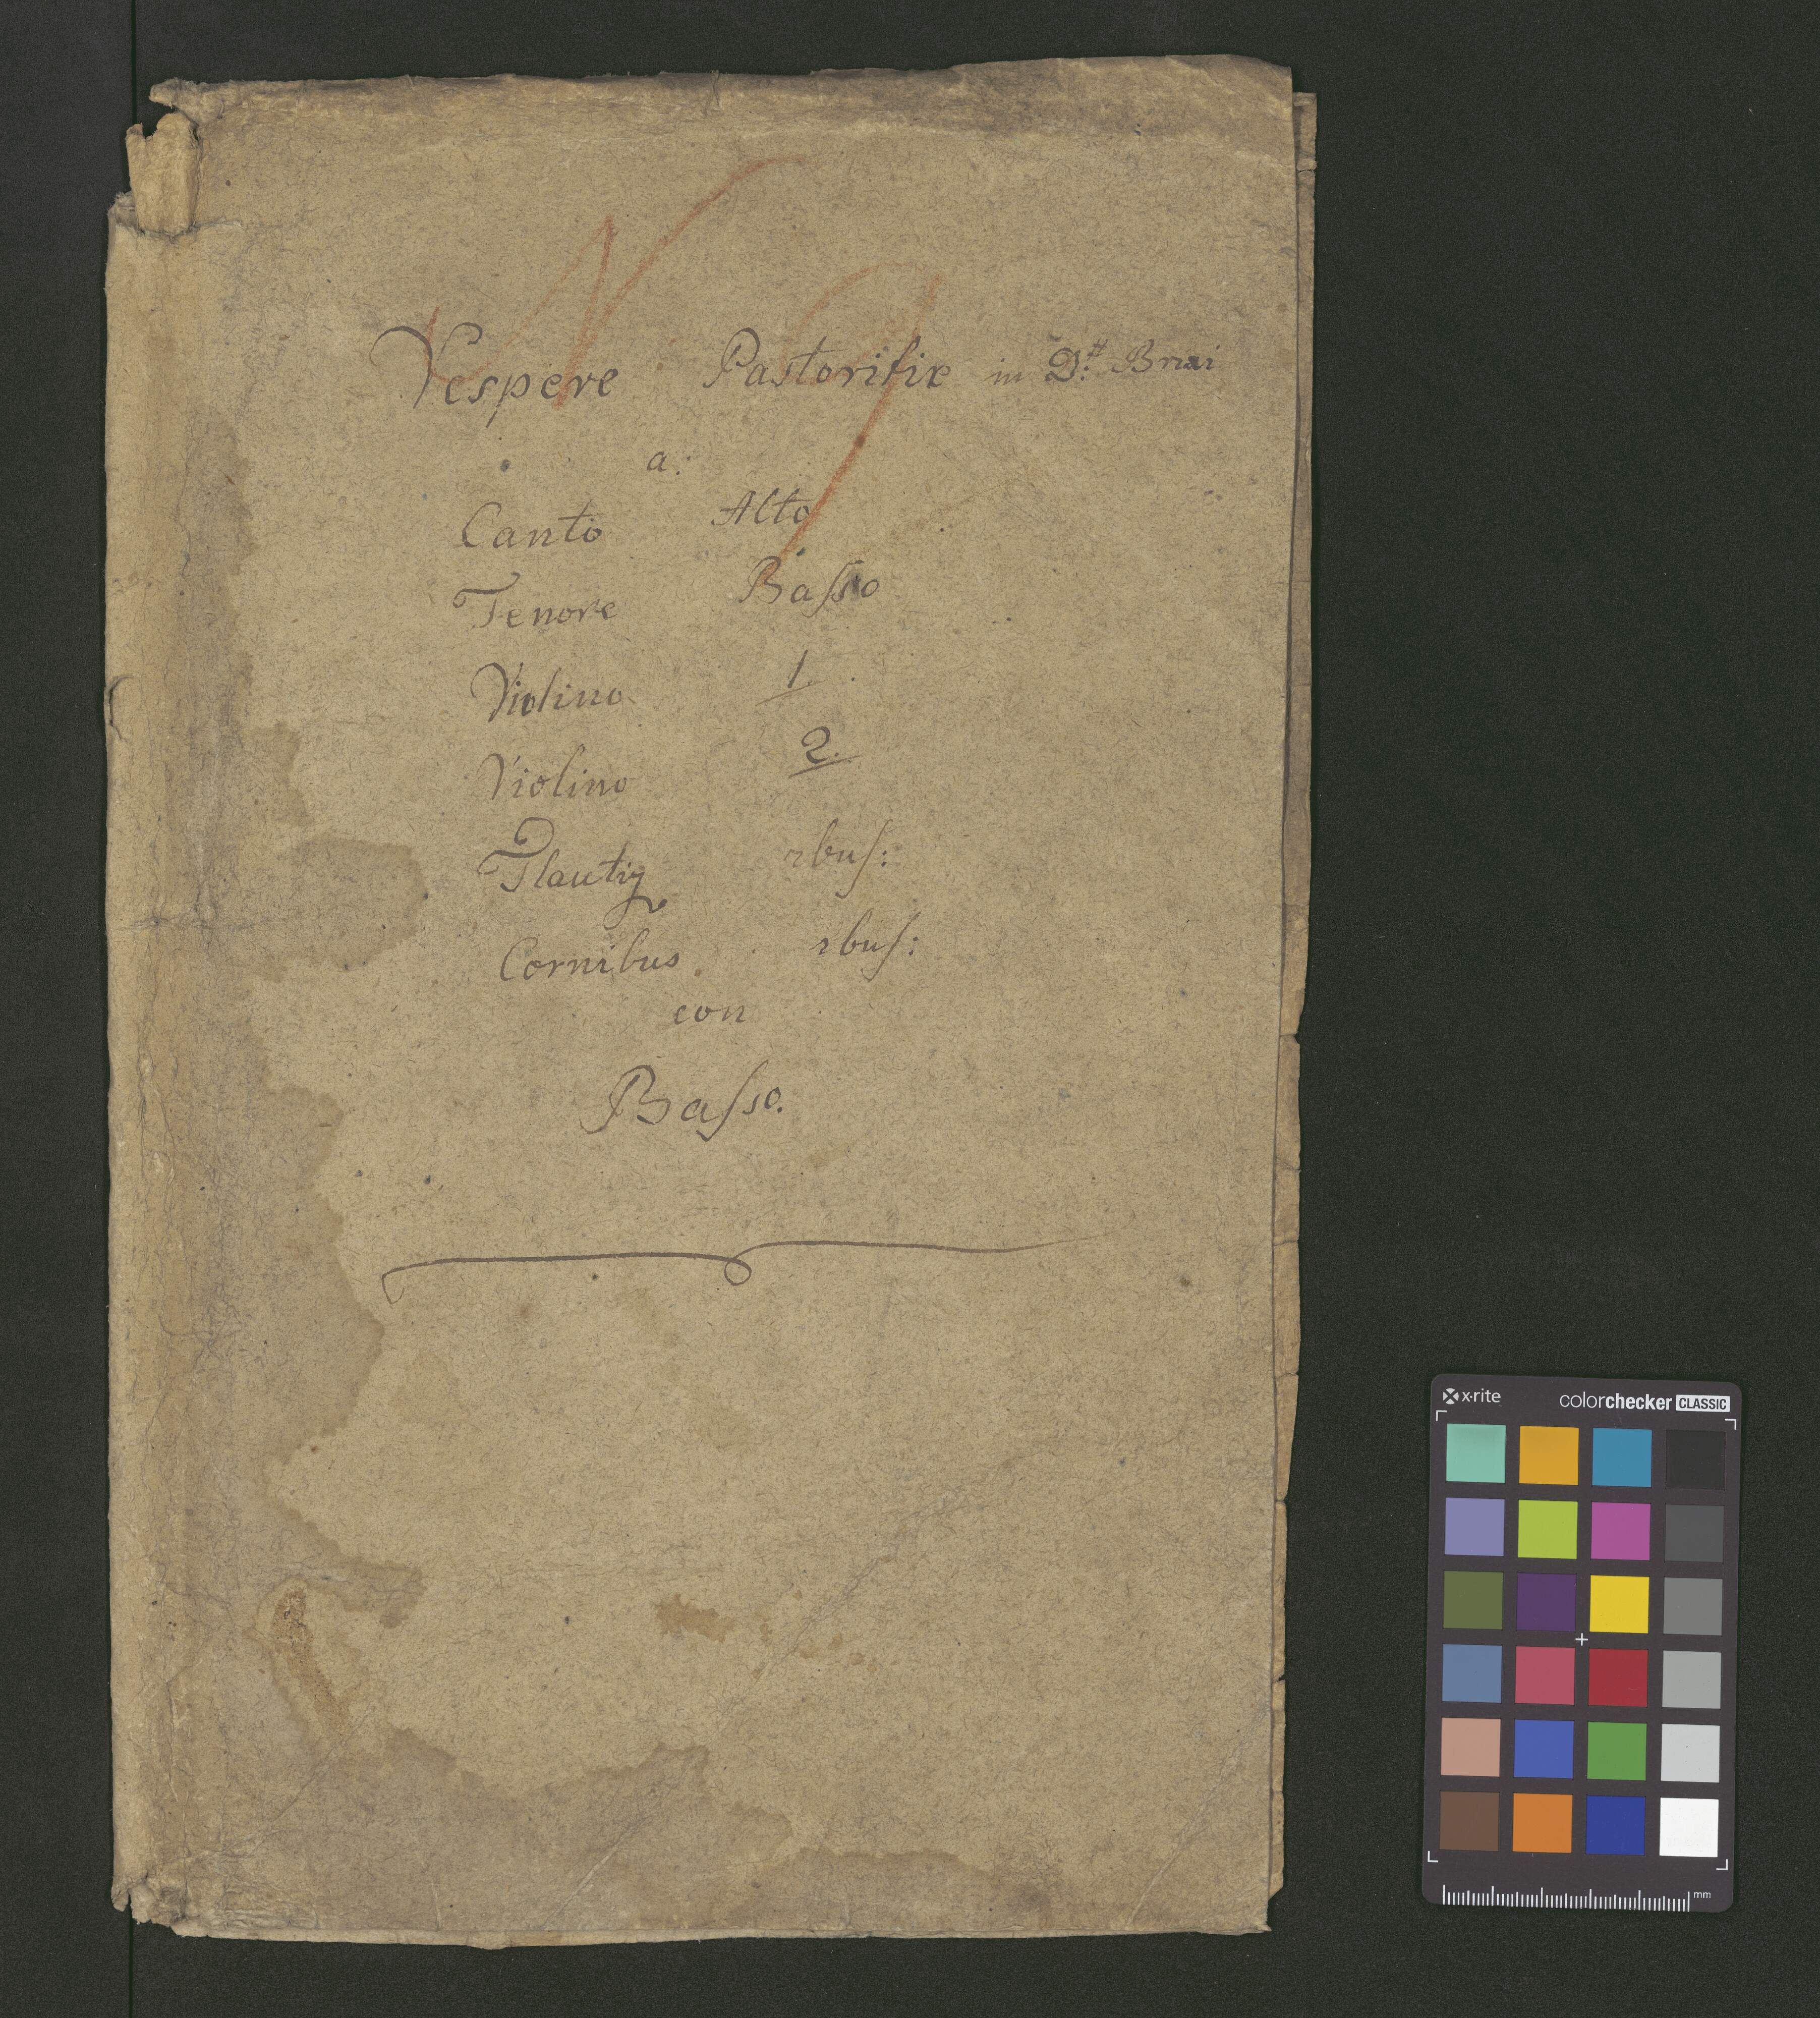 N 9
Vespere Pastoritiæ in D:# Brixi
a:
Canto Alto
Tenore Baſso
Violino 1.
Violino 2.
Flautis 2buſ:
Cornibus 2buſ:
con
Baſso.
x·rite colorchecker CLASSIC
mm